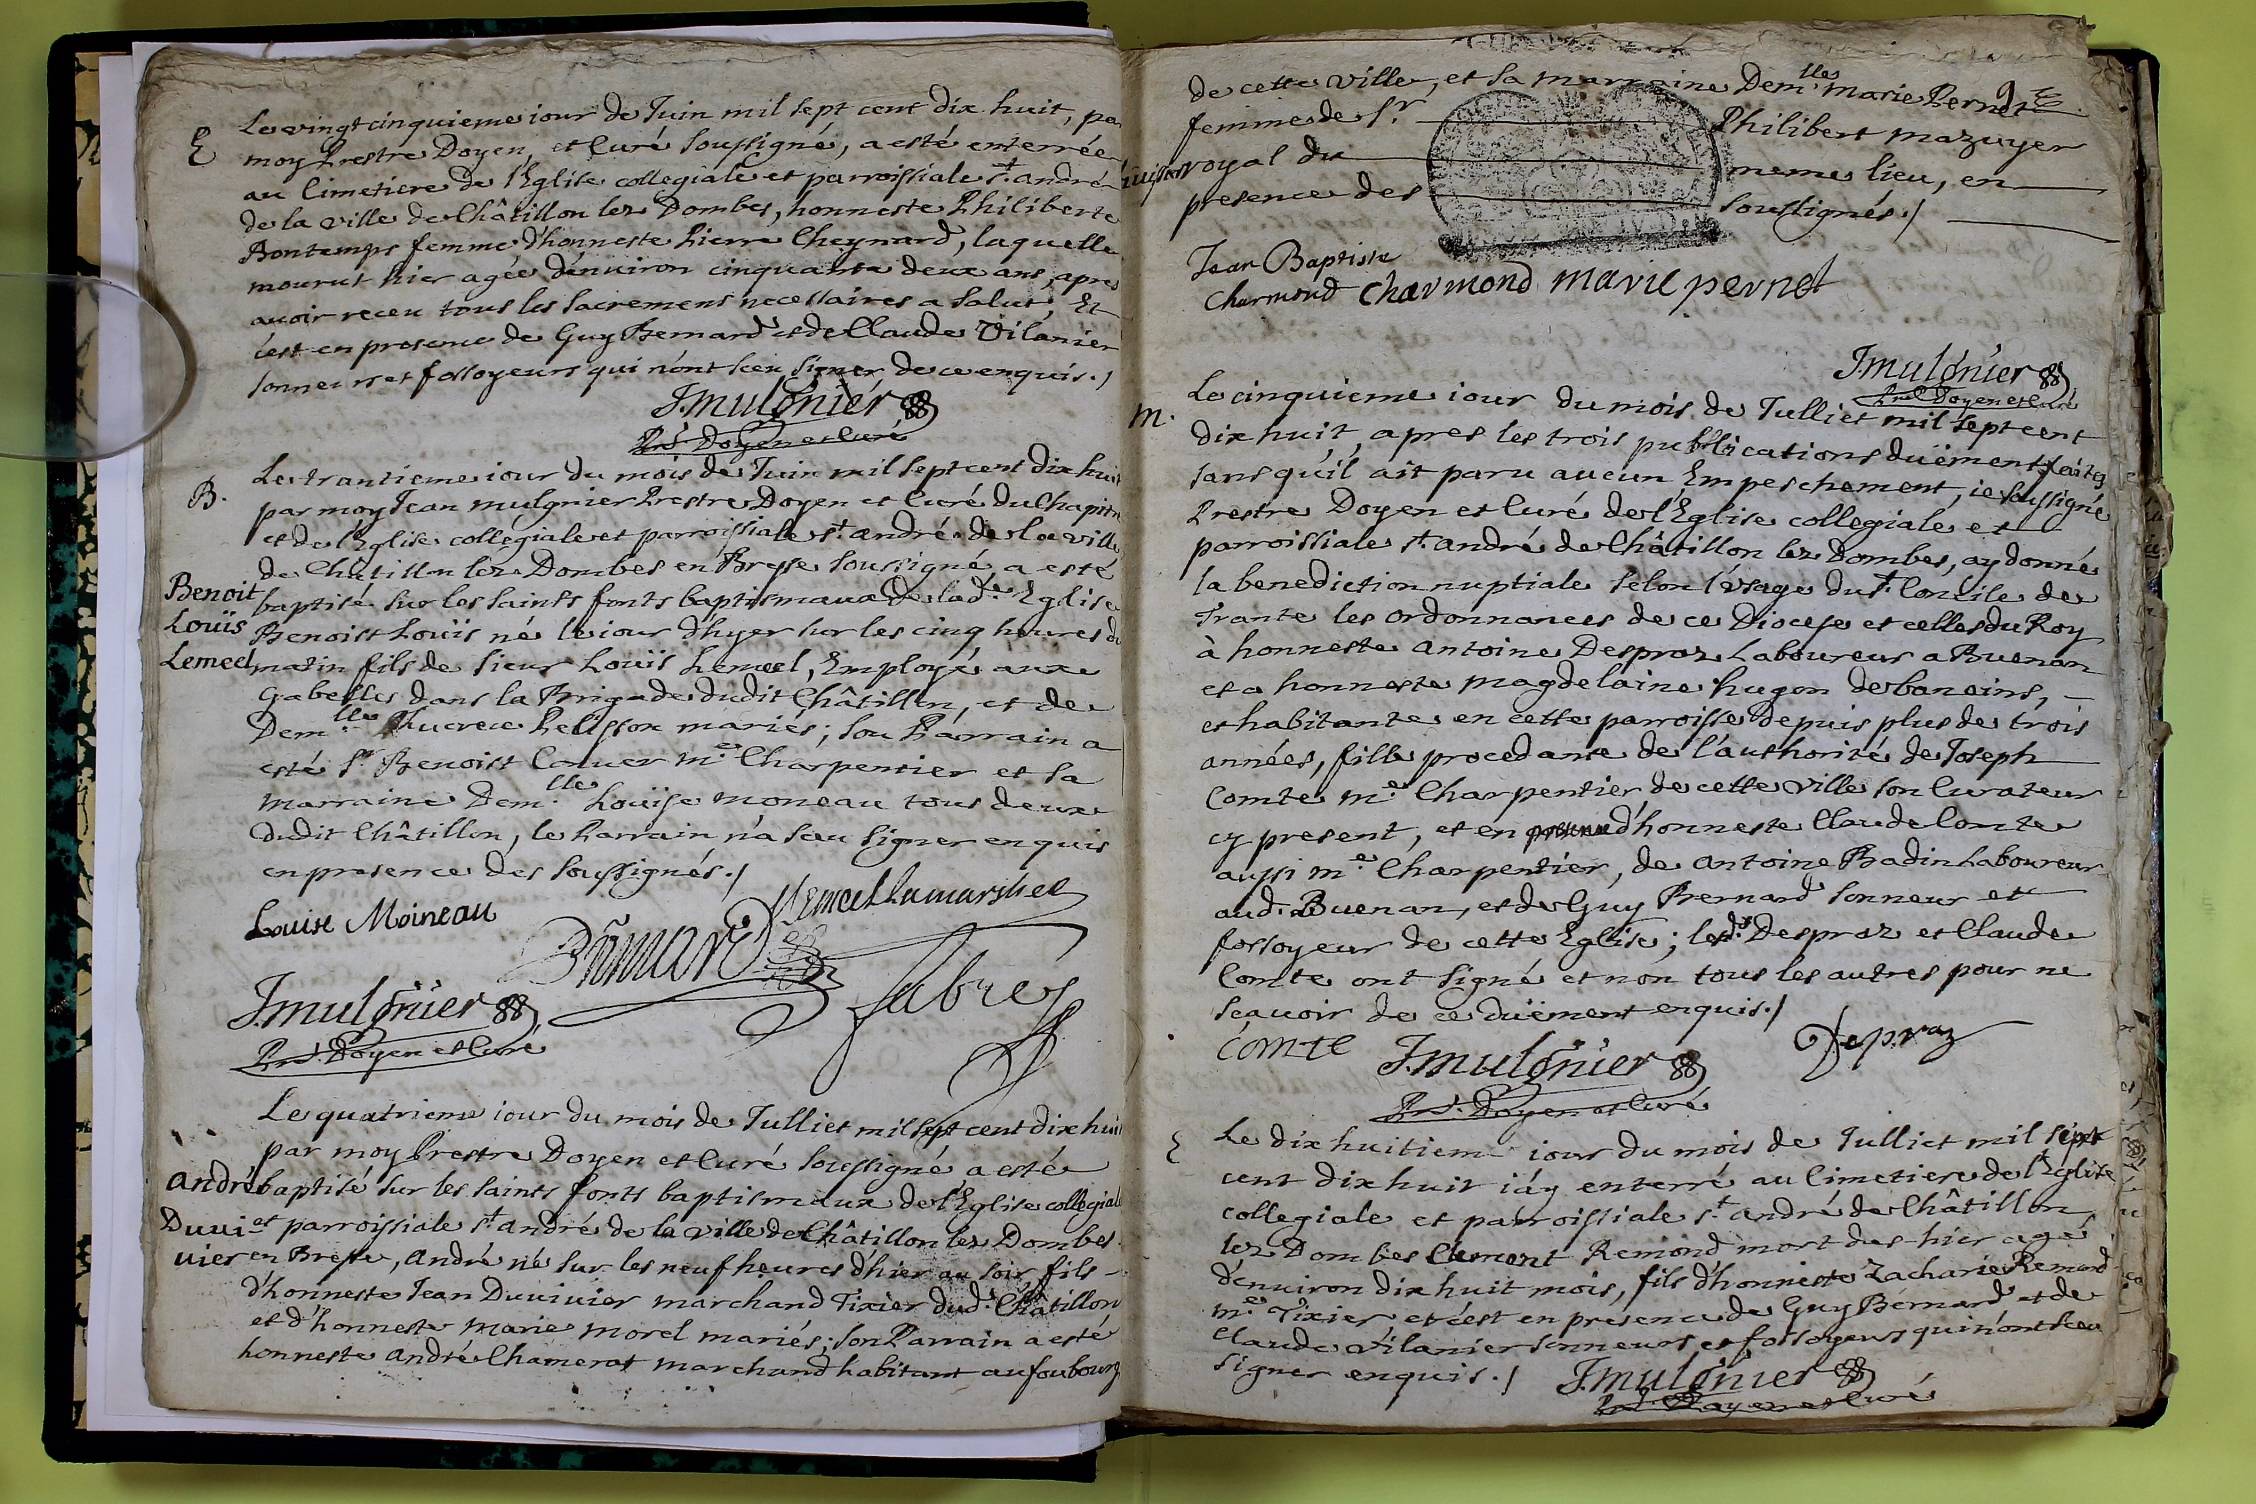 E
Le vingt cinquieme iour de Juin mil sept cent dix huit, par
moy Prestre Doyen, et Curé soussigné, a esté enterrée
au Cimetiere de l'Eglise collegiale et parroissiale St. andré
de la ville de Châtillon lez Dombes, honneste Philiberte
Bontemps femme d'honneste Pierre Cheynard, laquelle
mourut hier agée d'enuiron cinquante deux ans, apres
auoir receu tous les sacremens necessaires a salut, Et
c'est en presence de Guy Bernard et de Claude Vilanier
sonneurs et fossoyeurs qui n'ont sceu signer de ce enquis./
J. mulgnier
Pre. Doyen et Curé
B.
Benoit
Louïs
Lemeel
Le trantieme iour du mois de Juin mil sept cent dix huit
par moy Jean mulgnier Prestre Doyen et Curé du Chapitre
et de l'Eglise collegiale et parroissiale St. andré de la ville
de Châtillon lez Dombes en Bresse soussigné a esté
baptisé sur les saints fonts baptismaux de lade. Eglise
Benoist Louïs né le iour d'hyer sur les cinq heures du
matin fils de sieur Louïs Lemeel, Employé aux
Gabelles dans la Brigade dudit Châtillon, et de
Demlle. Lucrece Pelisson mariés; son Parrain a
esté Sr. Benoist Conuer me. Charpentier et sa
marraine Demlle. Louïse moneau tous deux
dudit Châtillon, le Parrain n'a sceu signer enquis
en presence des soussignés./
Louise Moineau
J. mulgnier
Pre. Doyen et Curé
fabre
andré
Duui
uier
Le quatrieme iour du mois de Julliet mil sept cent dix huit
par moy Prestre Doyen et Curé soussigné a esté
baptisé sur les saints fonts baptismaux de l'Eglise collegiale
et parroissiale St. andré de la ville de Châtillon lez Dombes
en Bresse, andré né sur les neuf heures d'hier au soir fils
d'honneste Jean Duuiuier marchand Tixier dud. Châtillon
et d'honneste marie morel mariés; son Parrain a esté
honneste andré Chamerat marchand habitant au foubourg
9
de cette ville, et sa marraine Demlle. marie Pernet
femme de Sr. Philibert mazuyer
royal du meme lieu, en
presence des soussignés./
Jean Baptiste
Charmond Charmond marie pernet
J. mulgnier
Pre. Doyen et Curé
m.
Le cinquieme iour du mois de Julliet mil sept cent
dix huit, apres les trois publications duëment faites
sans qu'il ait paru aucun Empeschement, ie soussigné
Prestre Doyen et Curé de l'Eglise collegiale et
parroissiale St. andré de Châtillon lez Dombes, ay donné
la benediction nuptiale selon l'vsage du St. Concile de
Trante les ordonnances de ce Diocese et celles du Roy
à honneste antoine Despraz Laboureur a Buenan
et a honneste magdelaine hugon de baneins,
et habitante en cette parroisse depuis plus de trois
années, fille procedante de l'authorité de Joseph
Comte me. Charpentier de cette ville son Curateur
cy present, et en presence d'honneste Claude Comte
aussi me. Charpentier, de antoine Badin Laboureur
aud. Buenan, et de Guy Bernard sonneur et
fossoyeur de cette Eglise; lesd. Despraz et Claude
Comte ont signé et non tous les autres pour ne
sçauoir de ce duëment enquis./
comte J. mulgnier Depraz
Pre. Doyen et Curé
E
Le dix huitieme iour du mois de Julliet mil sept
cent dix huit i'áy enterré au Cimetiere de l'Eglise
collegiale et parroissiale St. andré de Châtillon
lez Dombes Clement Remond mort des hier agé
d'enuiron dix huit mois, fils d'honneste Zacharie Remond
me. Tixier et c'est en presence de Guy Bernard et de
Claude Vilanier sonneurs et fossoyeurs qui n'ont sceu
signer enquis./ J. mulgnier
Pre. Doyen et Curé